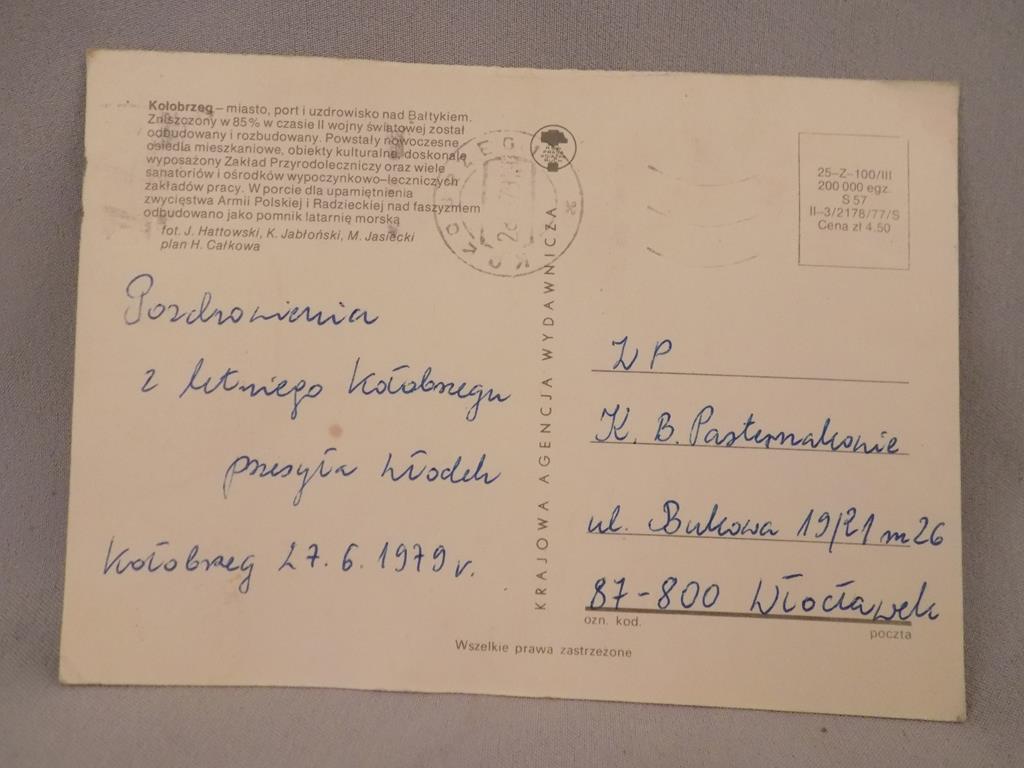 Kołobrzeg – miasto, port i uzdrowisko nad Bałtykiem.
Zniszczony w 85% w czasie II wojny światowej został
odbudowany i rozbudowany. Powstały nowoczesne
osiedla mieszkaniowe, obiekty kulturalne, doskonale
wyposażony Zakład Przyrodoleczniczy oraz wiele
sanatoriów i ośrodków wypoczynkowo–leczniczych
zakładów pracy. W porcie dla upamiętnienia
zwycięstwa Armii Polskiej i Radzieckiej nad faszyzmem
odbudowano jako pomnik latarnię morską
fot. J. Hattowski, K. Jabłoński, M. Jasiecki
plan H. Całkowa
Pozdrowienia
z letniego Kołobrzegu
przesyła Włodek
Kołobrzeg 27.6.1979 r.
KRAJOWA AGENCJA WYDAWNICZA
25–Z–100/III
200 000 egz.
S 57
II–3/2178/77/S
Cena zł 4.50
WP
K. B. Pasternakowie
ul. Bukowa 19/21 m 26
87-800 Włocławek
ozn. kod.
poczta
Wszelkie prawa zastrzeżone